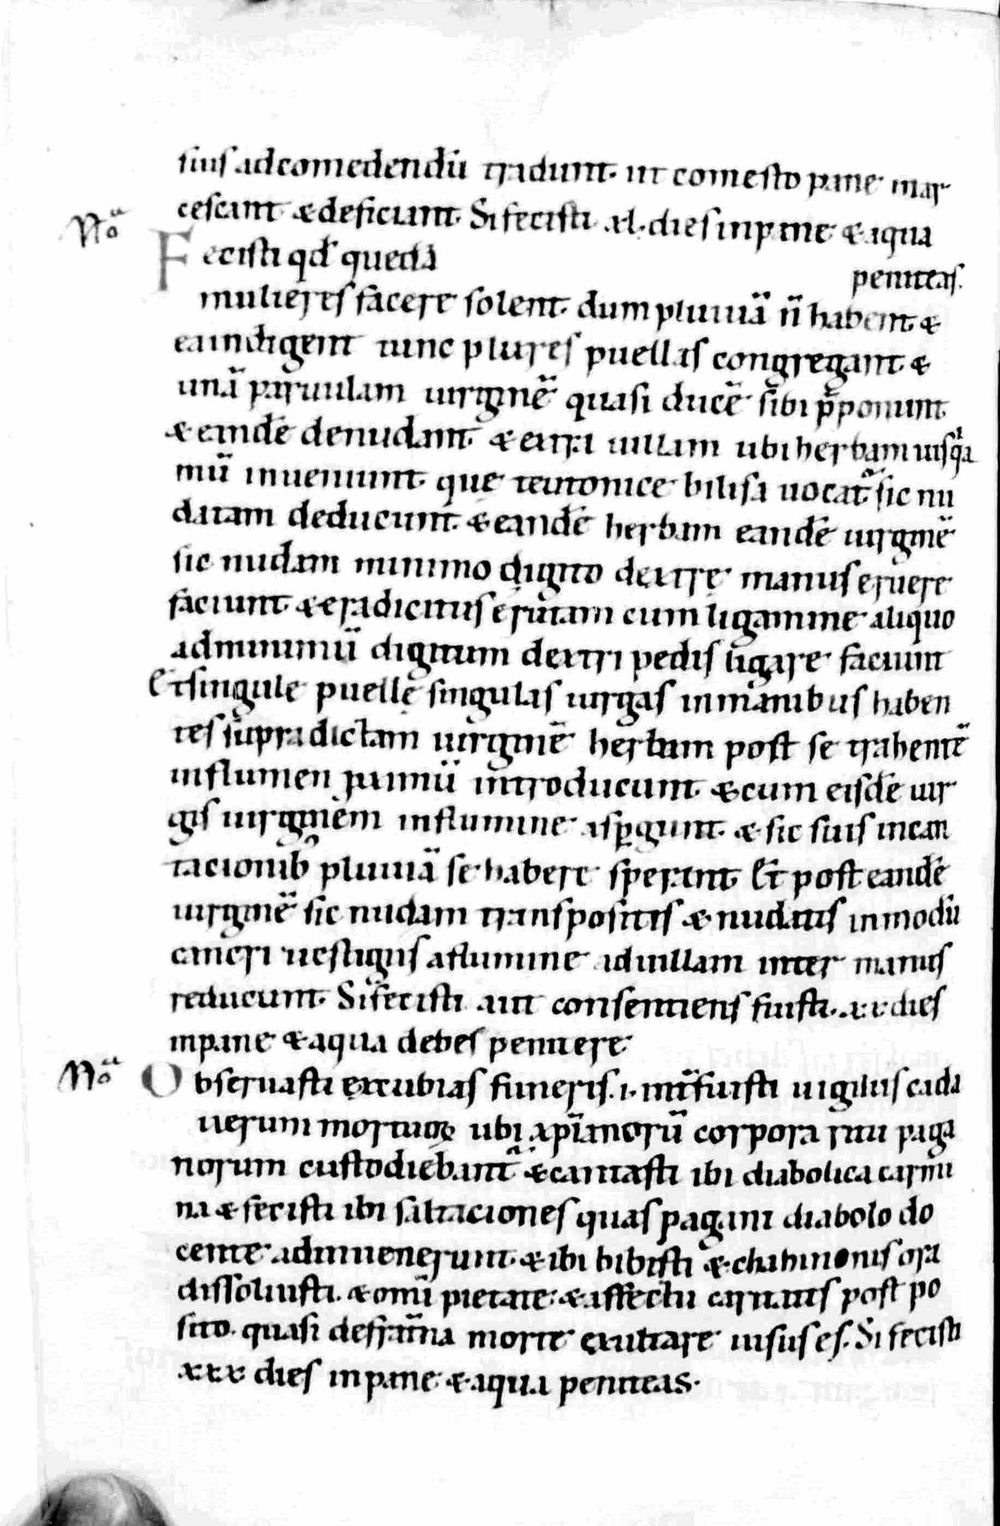 suis ad comedendū tradunt. ut comesto pane mar
cescant & deficiunt. Si fecisti .xl. dies in pane & aqua
peniteas.
Nōᵃ
Fecisti qđ quedā
mulieres facere solent. dum pluuiā ñ habent &
ea indigent tunc plures puellas congregant. &
unā paruulam uirginē quasi ducē sibi p̄ponunt.
& eandē denudant. & extra uillam ubi herbam iusqᵃ
mū inueniunt. que teutonice bilisa uocat̄ sic nu
datam deducunt. & eandē herbam eandē uirginē
sic nudam minimo digito dextre manus eruere
faciunt. & eradicitus erutam cum ligamine aliquo
ad minimū digitum dextri pedis ligare faciunt
Et singule puellę singulas uirgas in manibus haben
tes supradictam uirginē herbam post se trahentē
in flumen p̄ximū introducunt. & cum eisdē uir
gis uirginem in flumine asp̱gunt. & sic suis incan
tacionib; pluuiā se habere sperant. Et post eandē
uirginē sic nudam transpositis & nudatis in modū
cancri uestigiis a flumine ad uillam inter manus
reducunt. Si fecisti aut consentiens fuisti. .xx dies
in pane & aqua debes penitere.
Nōᵃ
Obseruasti excubias funeris .i. int̄fuisti uigiliis cada
uerum mortuoꝝ ubi xp̄ianorū corpora ritu paga
norum custodiebant. & cantasti ibi diabolica carmi
na & fecisti ibi saltaciones quas pagani diabolo do
cente adinuenerunt. & ibi bibisti & chahinnis ora
dissoluisti. & omī pietate. & affectu caritatis post po
sito. quasi de frat̄na morte exultare uisus es. Si fecisti
xxx dies in pane & aqua peniteas.